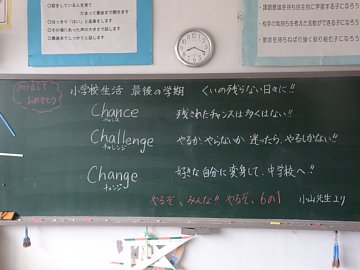 ・話をしている人を見て
だまって最後まで聞きます
・はっきり「はい」と返事をします
・その場にあった声の大きさで話します
・最後までしっかりと話します
・課題意識を持ち自主的に学習する子になろう
・相手の気持ちを考えた言動ができる子になろう
・意欲を持ちねばり強く取り組む子になろう
あけまして
おめでとう
小学校生活 最後の学期 くいの残らない日々に!!
Chance 残されたチャンスは多くはない!!
チャンス
Challenge やるか、やらないか 迷ったら、やるしかない!!
チャレンジ
Change 好きな自分に変身して、中学校へ!!
チェンジ
やるぞ、みんな!! やるぞ、6の1 小山先生より